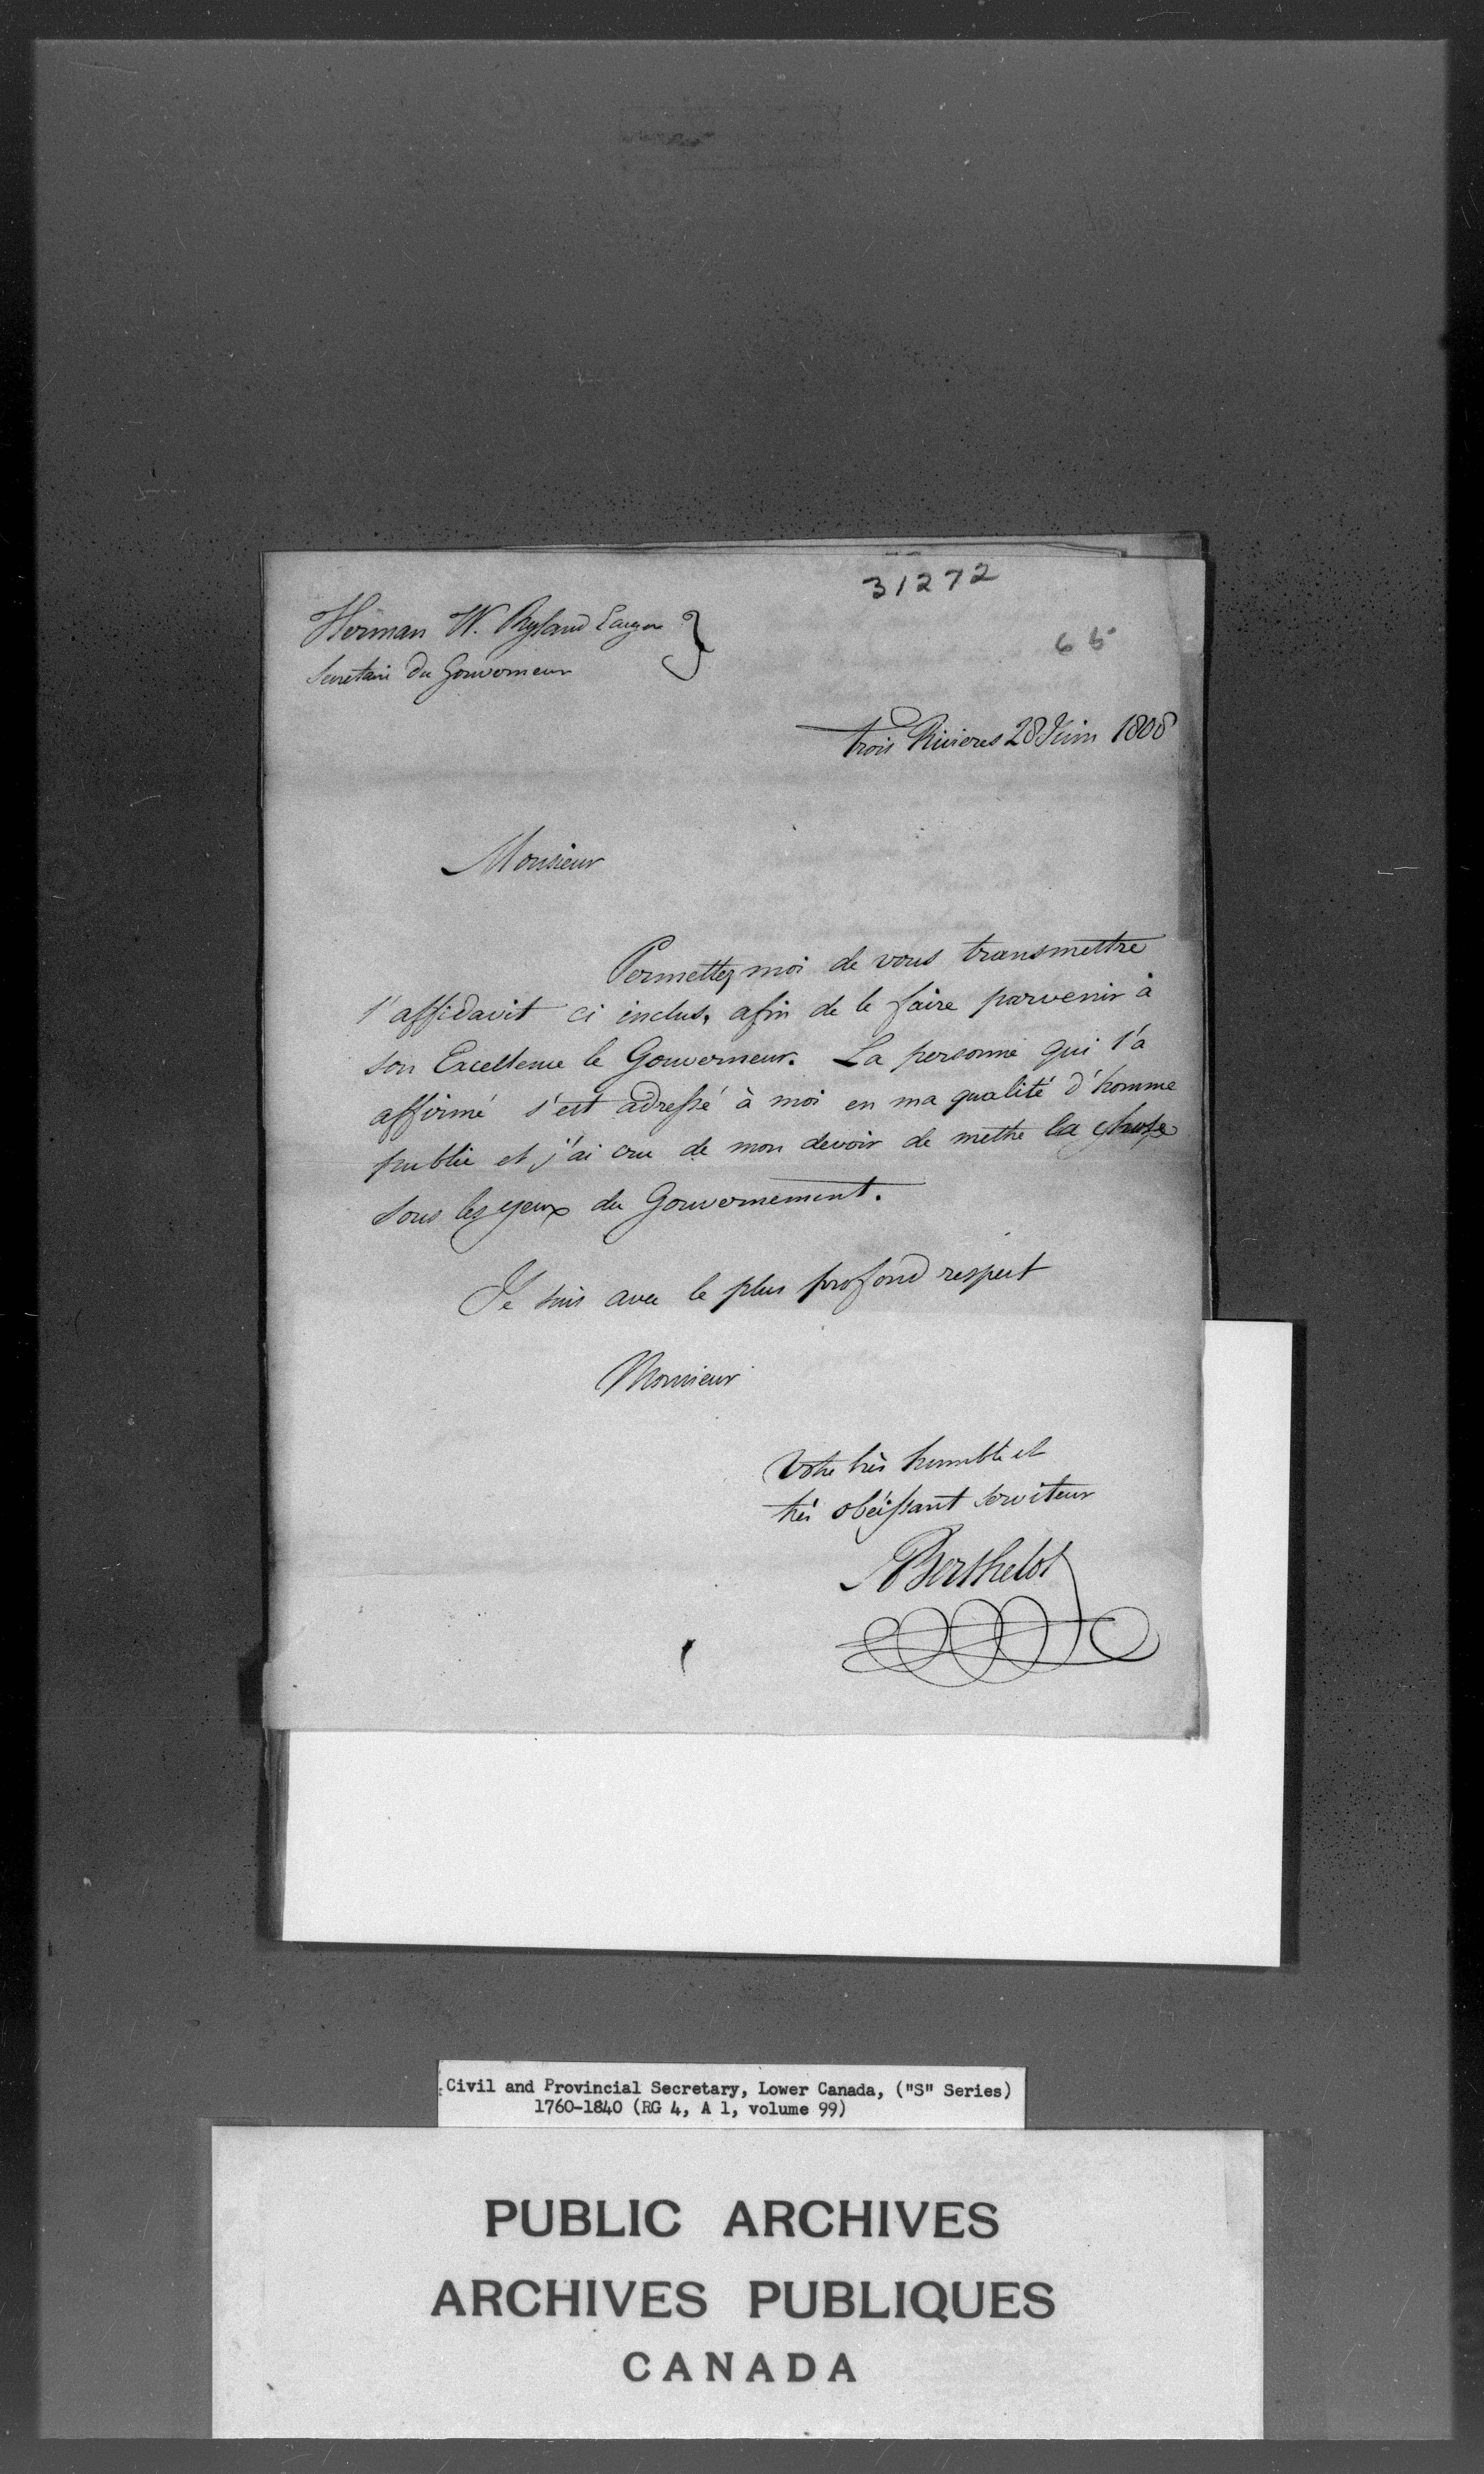 31272
65
Herman W. Ryland Ecuyer }
Secretaire du Gouverneur
trois Rivieres 28 Juin 1808
Monsieur
Permettez moi de vous transmettre
l'affidavit ci inclus, afin de le faire parvenir à
son Excellence le Gouverneur. La personne qui l'a
affirmé s'est adressé à moi en ma qualité d'homme
public et j'ai cru de mon devoir de mettre la chose
sous les yeux du Gouvernement.
Je suis avec le plus profond respect
Monsieur
Votre très humble et
très obéissant serviteur
ABerthelot
Civil and Provincial Secretary, Lower Canada, ("S" Series)
1760-1840 (RG 4, A 1, volume 99)
PUBLIC ARCHIVES
ARCHIVES PUBLIQUES
CANADA